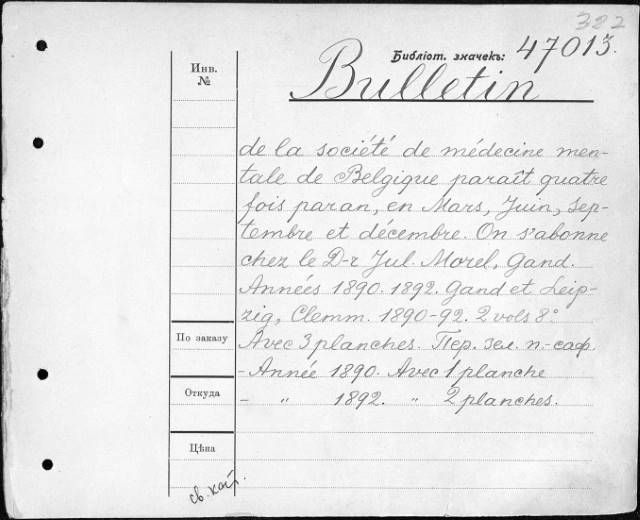 382
Библіот. значекъ: 47013.
Инв.
№
Bulletin
de la société de médecine men-
tale de Belgique paraît quatre
fois par an, en Mars, Juin, Sep-
tembre et décembre. On s'abonne
chez le D-r Jul. Morel, Gand.
Années 1890. 1892. Gand et Leip-
zig, Clemm. 1890-92. 2 vols 8°.
По заказу
Avec 3 planches. Пер. зел. п.-саф.
- Année 1890. Avec 1 planche
Откуда
- " 1892. " 2 planches.
Цѣна
св. кат.